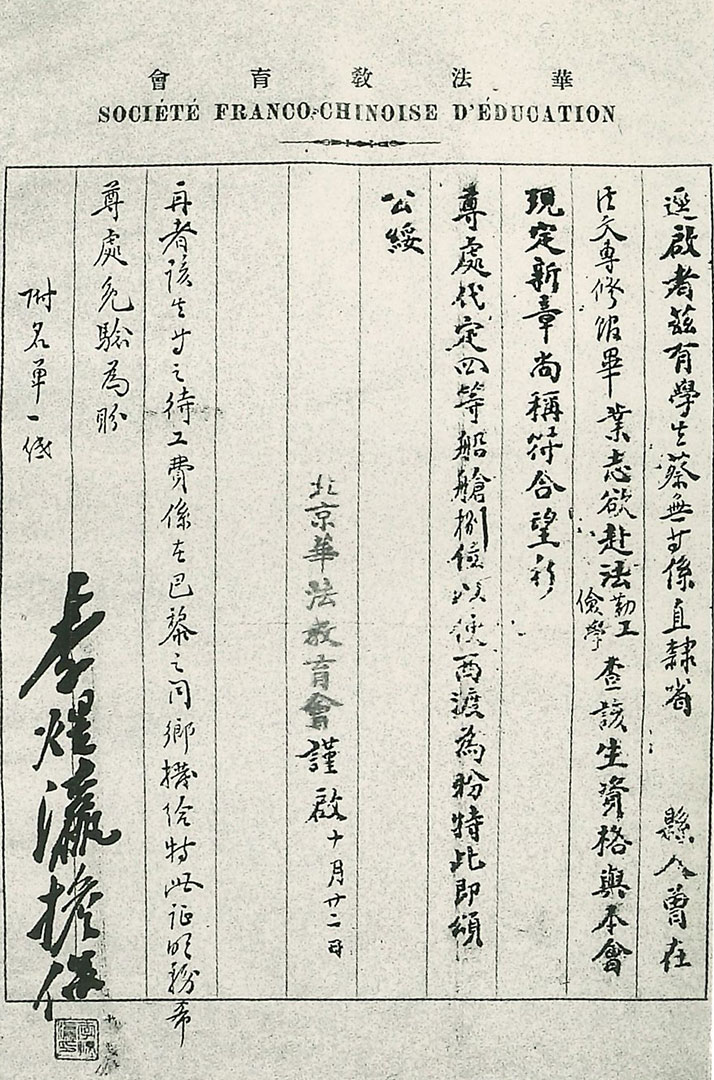 華法教育會
SOCIÉTÉ FRANCO-CHINOISE D'ÉDUCATION
逕啟者茲有學生蔡無寸係直隸省 縣人曾在
法文專修館畢業志欲赴法勤工儉學查該生資格與本會
現定新章尚稱符合望祈
尊處代定四等船艙捌位以便西渡為盼特此即頌
公綏
北京華法教育會謹啟十月廿二日
再者該生寸之待工費係在巴黎之同鄉擔給特此証明務希
尊處免驗為盼
附名單一紙
李煜瀛擔保